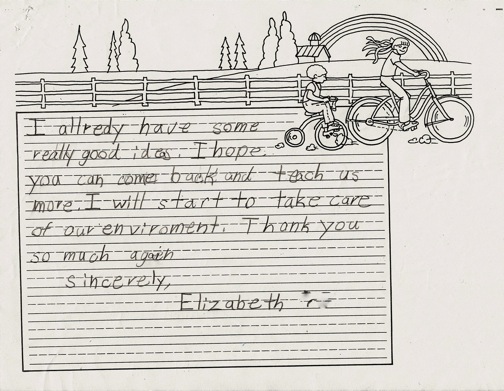 I allredy have some
really good ideas. I hope
you can come back and teach us
more. I will start to take care
of our enviroment. Thank you
so much again
sincerely,
Elizabeth